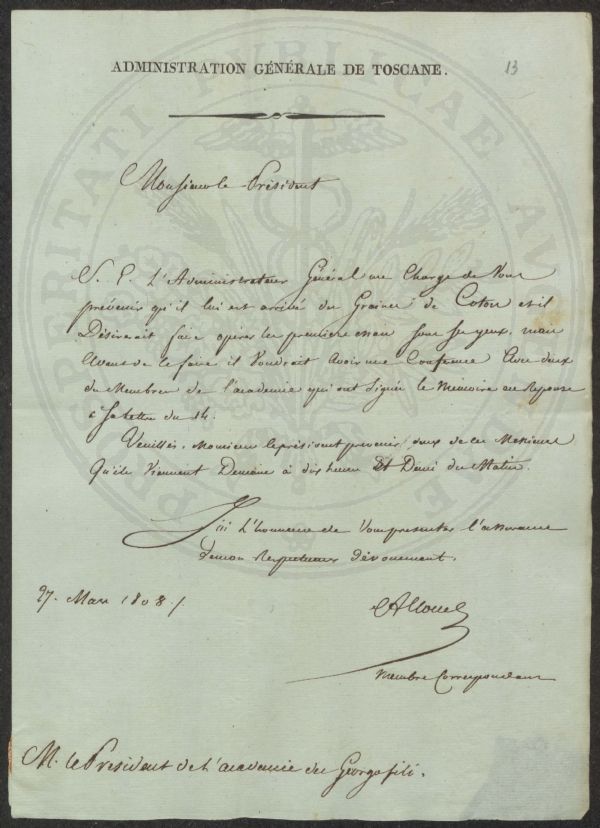 ADMINISTRATION GÉNÉRALE DE TOSCANE.
13
PROSPERITATI PUBLICAE AUGENDAE
Monsieur le Président
S. E. L'Administrateur Général me Charge de Vous
prévenir qu'il lui est arrivé des Graines de Coton et il
Désirerait faire opérer les premiers essais sous ses yeux, mais
Avant de le faire il Voudrait Avoir une Conférence Avec deux
des Membres de l'académie qui ont Signés le Mémoire en Réponse
à Sa lettre du 14.
Veuillés, Monsieur le président prévenir deux de ces Messieurs
Qu'ils Viennent Demain à dix heures Et Demi du Matin.
J'ai L'honneur de Vous présenter l'assurance
De mon Respectueux dévouement.
27. Mars 1808 /.
Membre Correspondant
M. le Président de L'académie des Georgofili.